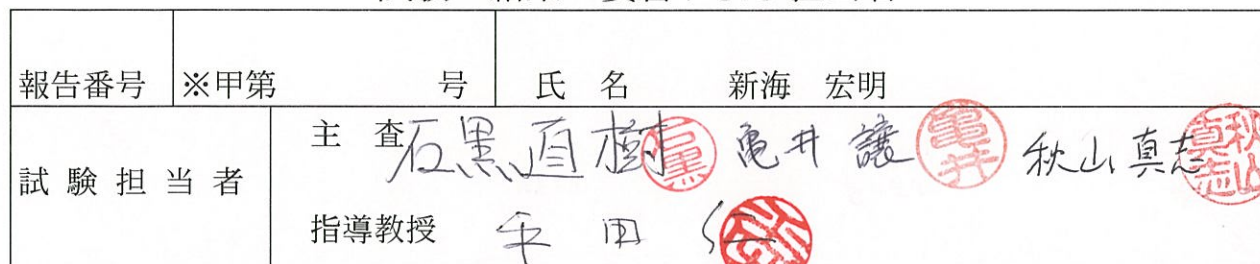 報告番号 ※甲第 号 氏名 新海 宏明
試験担当者 主査 石黒直樹 石黒 亀井譲 亀井 秋山真志 秋山真志
指導教授 平田仁